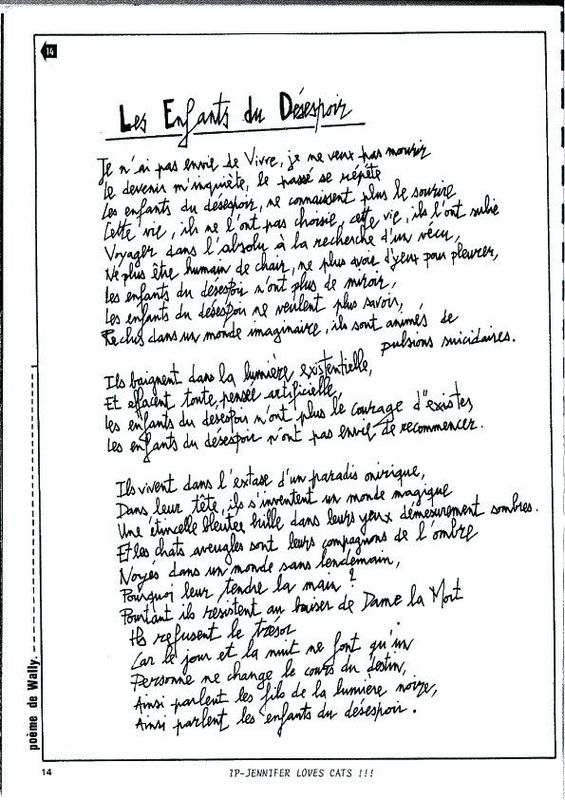 14
Les Enfants du Désespoir
Je n'ai pas envie de Vivre, je ne veux pas mourir
Le devenir m'inquiète, le passé se répète
Les enfants du désespoir, ne connaissent plus le sourire
Cette vie, ils ne l'ont pas choisie, cette vie, ils l'ont subie
Voyager dans l'absolu à la recherche d'un vécu,
Ne plus être humain de chair, ne plus avoir d'yeux pour pleurer,
Les enfants du désespoir n'ont plus de miroir,
Les enfants du désespoir ne veulent plus savoir,
Reclus dans un monde imaginaire, ils sont animés de
pulsions suicidaires.
Ils baignent dans la lumière existentielle,
Et effacent toute pensée artificielle,
Les enfants du désespoir n'ont plus le courage d'existes
Les enfants du désespoir n'ont pas envie de recommencer.
Ils vivent dans l'extase d'un paradis onirique,
Dans leur tête, ils s'inventent un monde magique
Une étincelle bleutée brille dans leurs yeux démesurement sombres.
Et les chats aveugles sont leurs compagnons de l'ombre
Noyés dans un monde sans lendemain,
Pourquoi leur tendre la main ?
Pourtant ils résistent au baiser de Dame la Mort
Ils refusent le trésor
Car le jour et la nuit ne font qu'un
Personne ne change le cours du destin,
Ainsi parlent les fils de la lumière noire,
Ainsi parlent les enfants du désespoir.
poème de Wally.
14
IP-JENNIFER LOVES CATS !!!